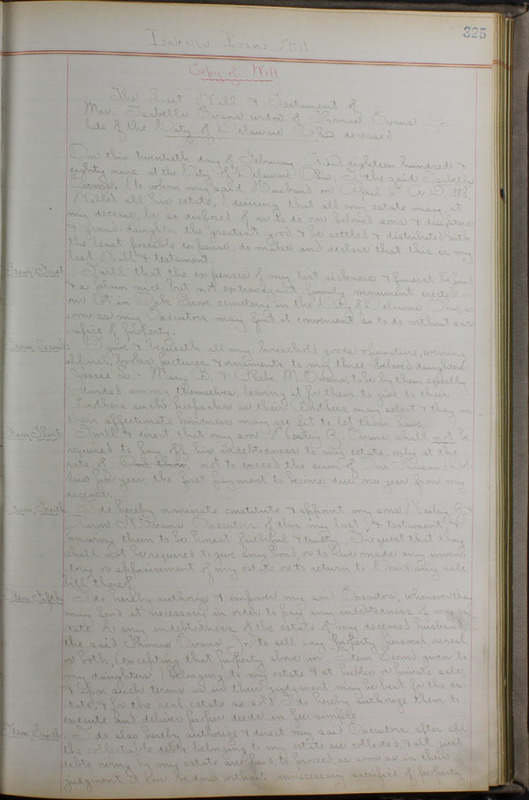 325
Isabella Evans Will
Copy of Will
The Last Will & Testament of
Mrs. Isabella Evans widow of Thomas Evans Jr.
late of the City of Delaware Ohio deceased
On this twentieth day of February A.D. eighteen hundred &
eighty nine at the City of Delaware Ohio, I the said Isabella
Evans, (to whom my said Husband on April A.D. 1888,
Willed all his estate,) desiring that all my estate may, at
my decease, be so disposed of as to do our beloved sons & daughters
& grand-daughter the greatest good & be settled & distributed with
the least possible expense, do make and declare that this is my
last Will & testament.
Item, First I will that the expenses of my last sickness & funeral be paid
& a plain nice, but not extravagant family monument erected on
our lot in Oak Grove cemetery, in the City of Delaware Ohio, as
soon as my Executors may find it convenient so to do without sac-
rifice of property.
Item, Second I give & bequeath all my household goods & furniture, wearing
apparel, books, pictures & ornaments to my three beloved daughters
Mary E. & M. Evans, to be by them equally
divided among themselves, leaving it for them to give to their
Brothers such keepsakes as their Brothers may select & they in
their affectionate kindness may see fit to let them have.
Item, Third I will & direct that my son Wesley B. Evans shall not be
required to pay off his indebtedness to my estate, only at the
rate of not to exceed the sum of One Thousand Dol-
lars per year the first payment to become due one year from my
decease.
Item, Fourth I do hereby nominate constitute & appoint my sons Wesley B. &
Evans Executors of this my last & testiment, &
knowing them to be honest faithful & trusty, I request that they
shall not be required to give any bond, or to have made any inven-
tory or appraisement of my estate or to return to Court any sale
bill thereof.
Item, Fifth I do hereby authorize & empower my said Executors, whensoever they
may find it necessary in order to pay any indebtedness of my es-
tate or any indebtedness of the estate of my deceased husband
the said Thomas Evans, Jr. to sell any property personal or real
or both, (excepting that property above in Item Second given to
my daughters,) belonging to my estate & at public or private sale,
& upon such terms as in their judgment may be best for the es-
tate, & for the real estate so sold I do hereby authorize them to
execute and deliver proper deeds in fee simple
Item, Sixth I do also hereby authorize & direct my said Executors after all
the collectable debts belonging to my estate are collected & all just
debts owing by my estate are paid to proceed as soon as in their
judgment it can be done without unnecessary sacrifice of property,